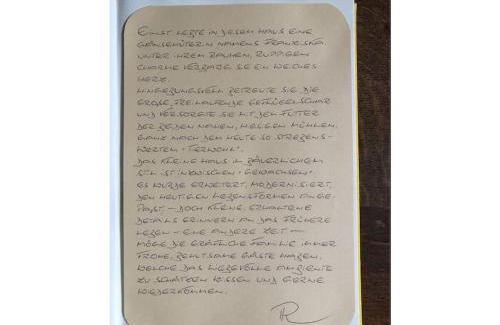 EINST LEBTE IN DIESEM HAUS EINE
GÄNSEHÜTERIN NAMENS FRANZISKA.
UNTER IHREM RAUHEN, RUPPIGEN
CHARME VERBARG SIE EIN WEICHES
HERZ.
HINGEBUNGSVOLL BETREUTE SIE DIE
GROßE, FREILAUFENDE GEFLÜGELSCHAR
UND VERSORGTE SIE MIT DEM FUTTER
DER BEIDEN NAHEN, HIESIGEN MÜHLEN.
GANZ NACH DEM HEUTE SO STREBENS-
WERTEN "TIERWOHL".
DAS KLEINE HAUS IM BÄUERLICHEM
STIL IST INZWISCHEN "GEWACHSEN".
ES WURDE ERWEITERT, MODERNISIERT,
DEN HEUTIGEN LEBENSFORMEN ANGE-
PAßT – DOCH KLEINE, ERHALTENE
DETAILS ERINNERN AN DAS FRÜHERE
LEBEN – EINE ANDERE ZEIT –
MÖGE DIE GRÄFLICHE FAMILIE IMMER
FROHE, BEHUTSAME GÄSTE HABEN,
WELCHE DAS LIEBEVOLLE AMBIENTE
ZU SCHÄTZEN WISSEN UND GERNE
WIEDERKOMMEN.
R